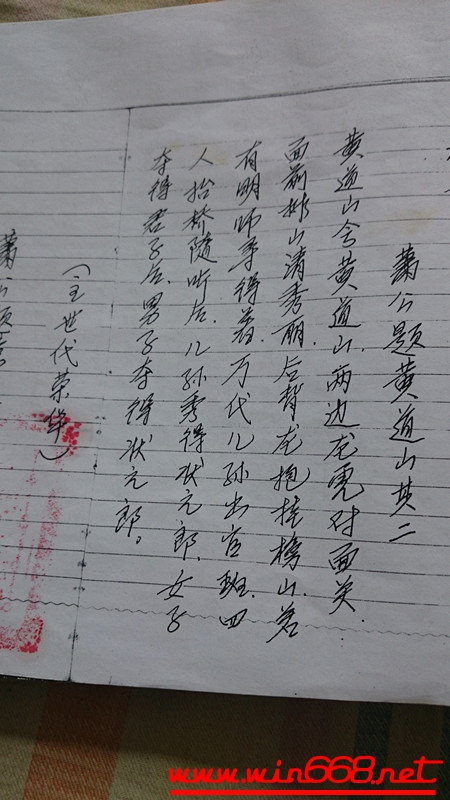 萧公题黄道山其二
黄道山兮黄道山.两边龙虎对面关.
面前排山清秀丽.后背龙抱挂榜山.若
有明师寻得着.万代儿孙出官班.四
人抬桥随听后.儿孙秀得状元郎.女子
夺得君子后.男子夺得状元郎。
(主世代荣华)
萧公题
www.win668.net